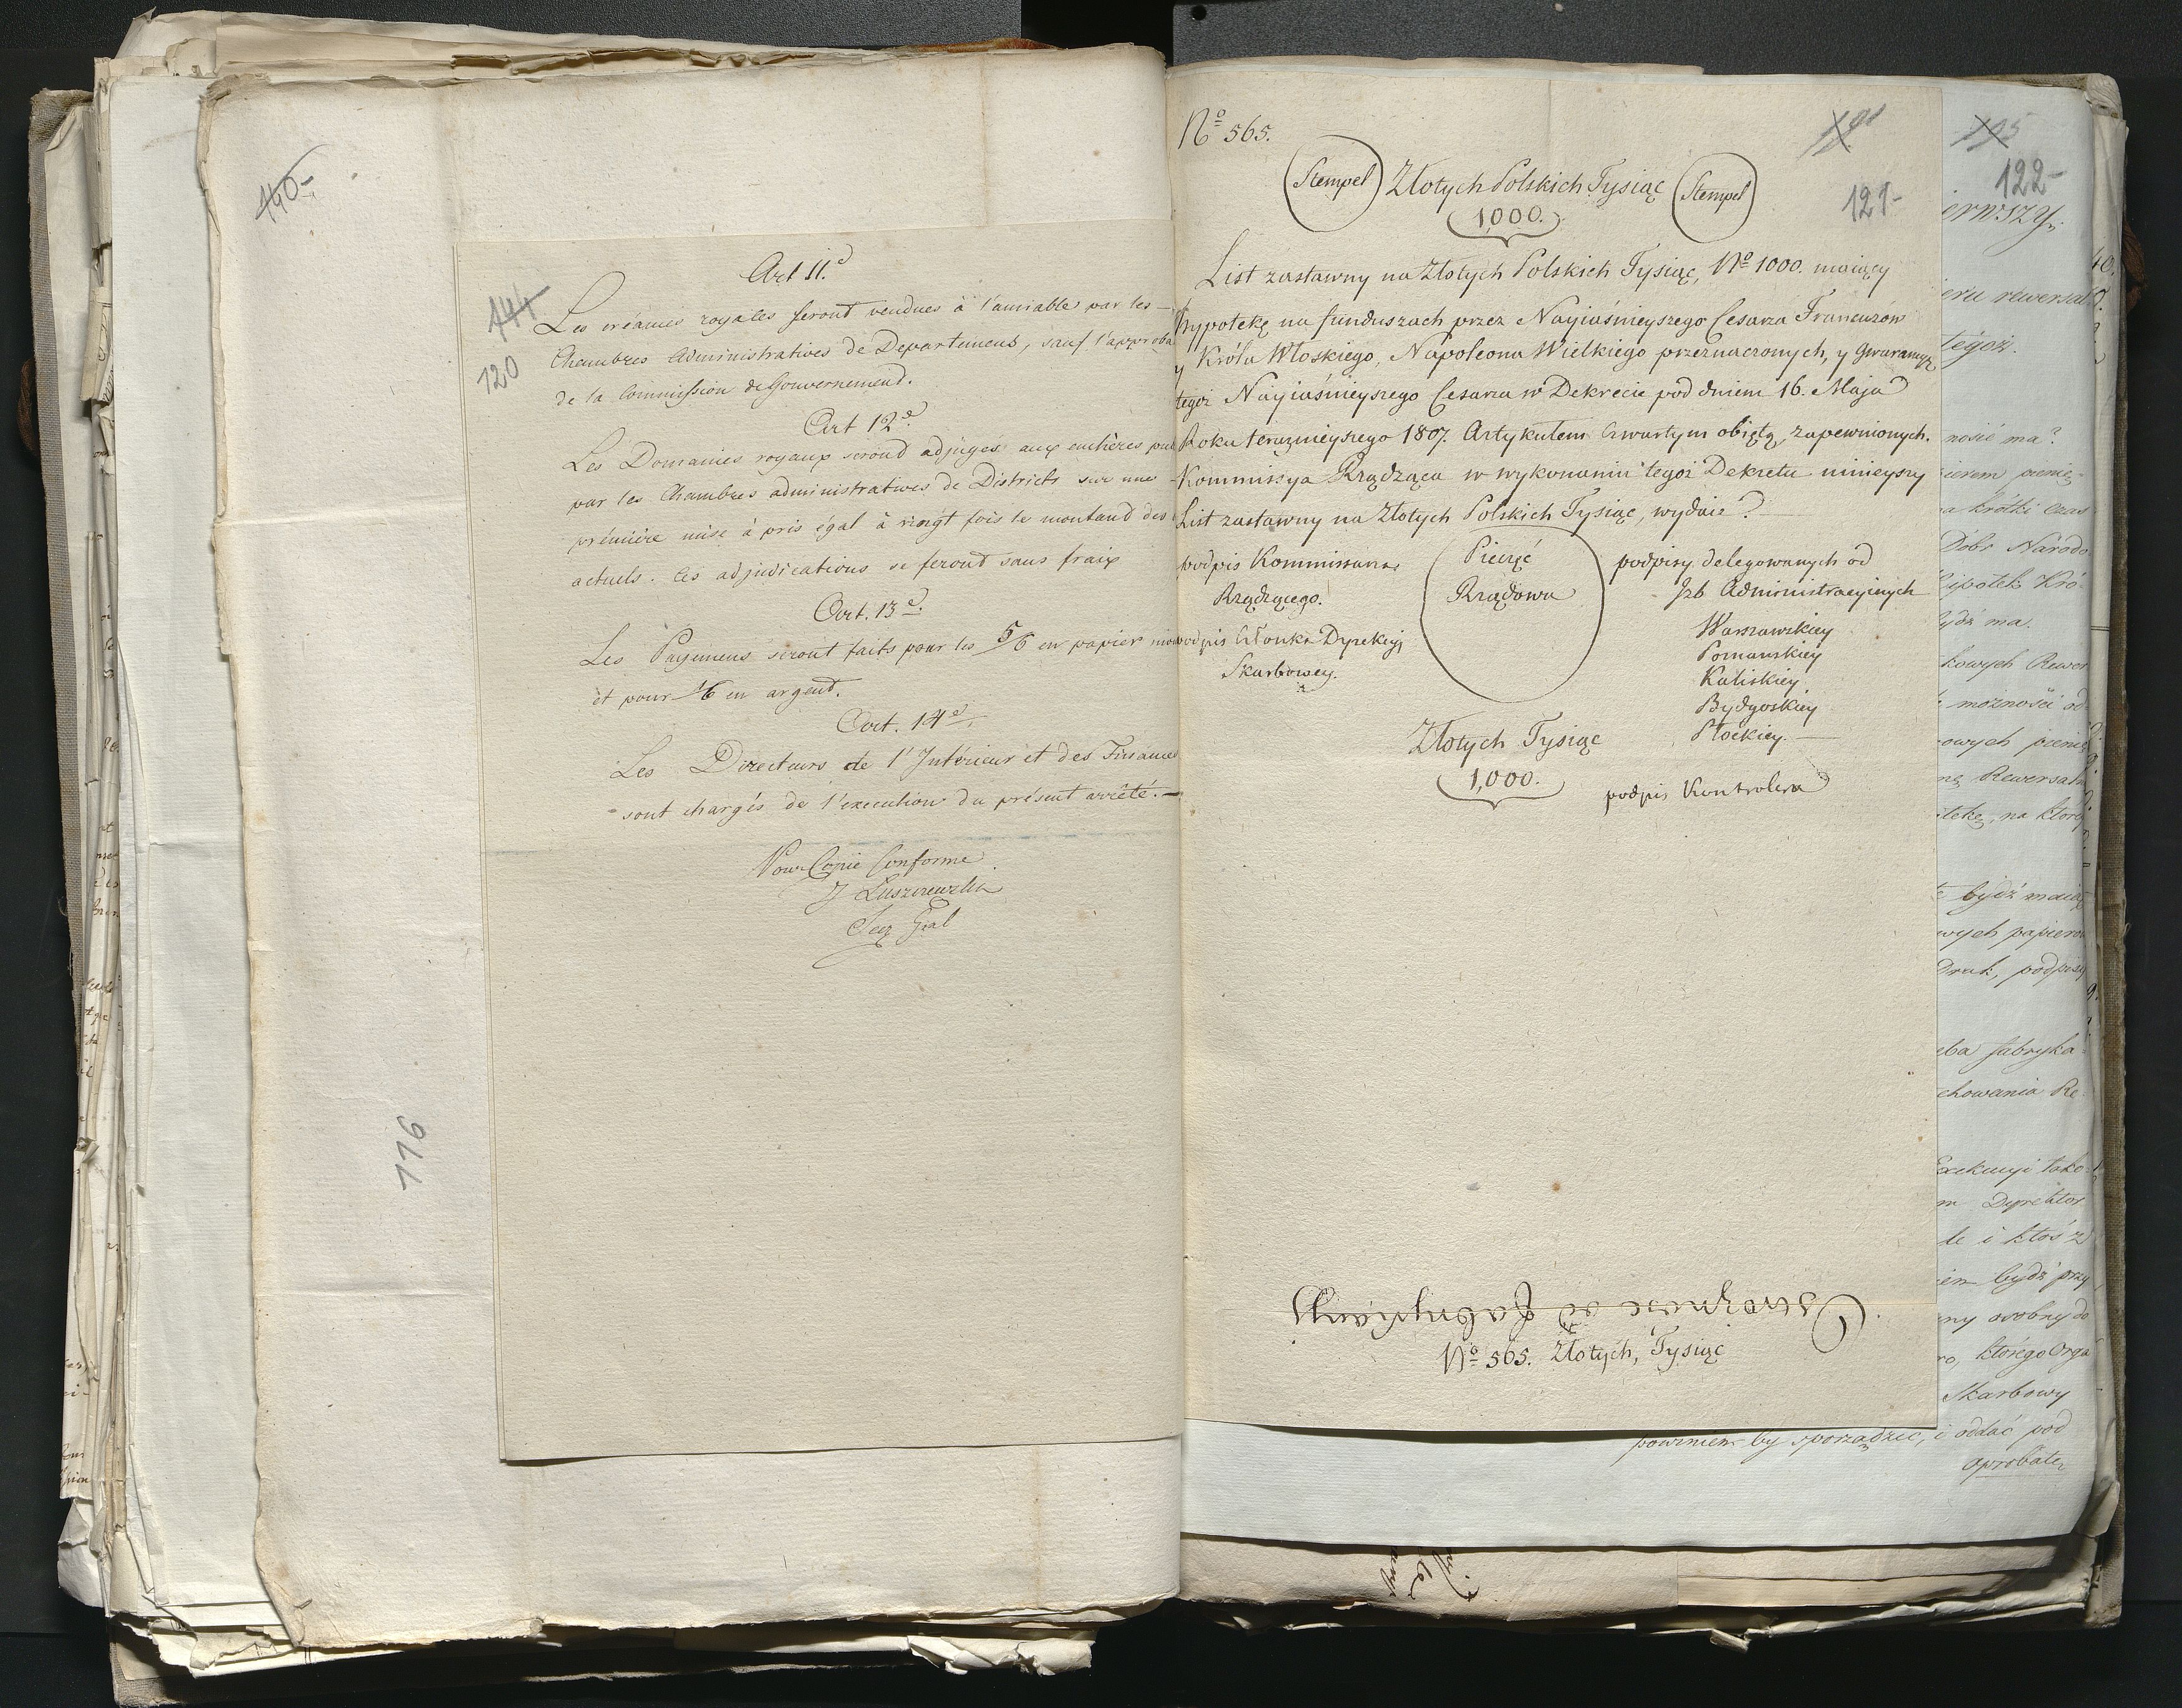 140-
144
120
Art 11.e
Les créances royales seront vendues à l'amiable par les
Chambres Administratives de Departemens, sauf l'approba
de la Commission de Gouvernement.
Art 12e
Les Domaines royaux seront adjugés aux enchères pub
par les Chambres administratives de Districts sur une
prémière mise à pris égal à vingt fois le montant des
actuels. Ces adjudications se feront sans fraix
Art. 13e.
Les Payemens seront faits pour les 5/6 en papier mon
et pour 1/6 en argent.
Art. 14e.
Les Directeurs de l'Intérieur et des Finances
sont chargés de l'execution du présent arrêté.—
Pour Copie Conforme
J Luszczewski
Secr Gral
116
No 565.
121-
Stempel Złotych Polskich Tysiąc Stempel
1,000.
List zastawny na Złotych Polskich Tysiąc, No 1000. maiący
hypotekę na funduszach przez Nayiaśnieyszego Cesarza Francuzów
y Króla Włoskiego, Napoleona Wielkiego przeznaczonych, y gwarancyą
tegoż Nayiaśnieyszego Cesarza w Dekrecie pod dniem 16. Maja
Roku teraznieyszego 1807. Artykułem czwartym obiętą, zapewnionych.
Kommissya Rządząca w wykonaniu tegoż Dekretu ninieyszy
List zastawny na Złotych Polskich Tysiąc, wydaie?
podpis Kommissarza
Rządzącego.
podpis Członka Dyrekcyi
Skarbowey.
Pieczęć
Rządowa
podpisy delegowanych od
Izb Administracyinych
Warszawskiey
Poznanskiey
Kaliskiey
Bydgoskiey
Płockiey.
Złotych Tysiąc
1,000.
podpis Kontrolera
Ostrożność od Fabrykacyi
No 565. Złotych, Tysiąc
122-
ierwszy.
tegoż.
nosić ma?
a krótki czas
Dóbr Narodo
bydź ma.
kowych Rewer
możności od
owych pienię
na Rewersaln
tekę, na którey
bydź maią
wych papierow
Druk, podpisy
eba fabryka
chowania Re
Exekucyi tako
m Dyrektor
de i ktoś z
ien bydź przy
ny osobny do
ro, którego Orga
Skarbowy
powinien by sporządzić, i oddać pod
aprobatę